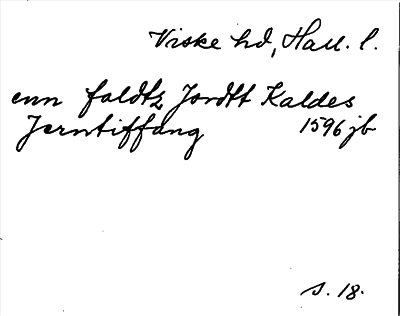 Viske hd, Hall. l.
enn foldtz Jordtt Kaldes
Jerntiffang 1596 jb
s. 18.